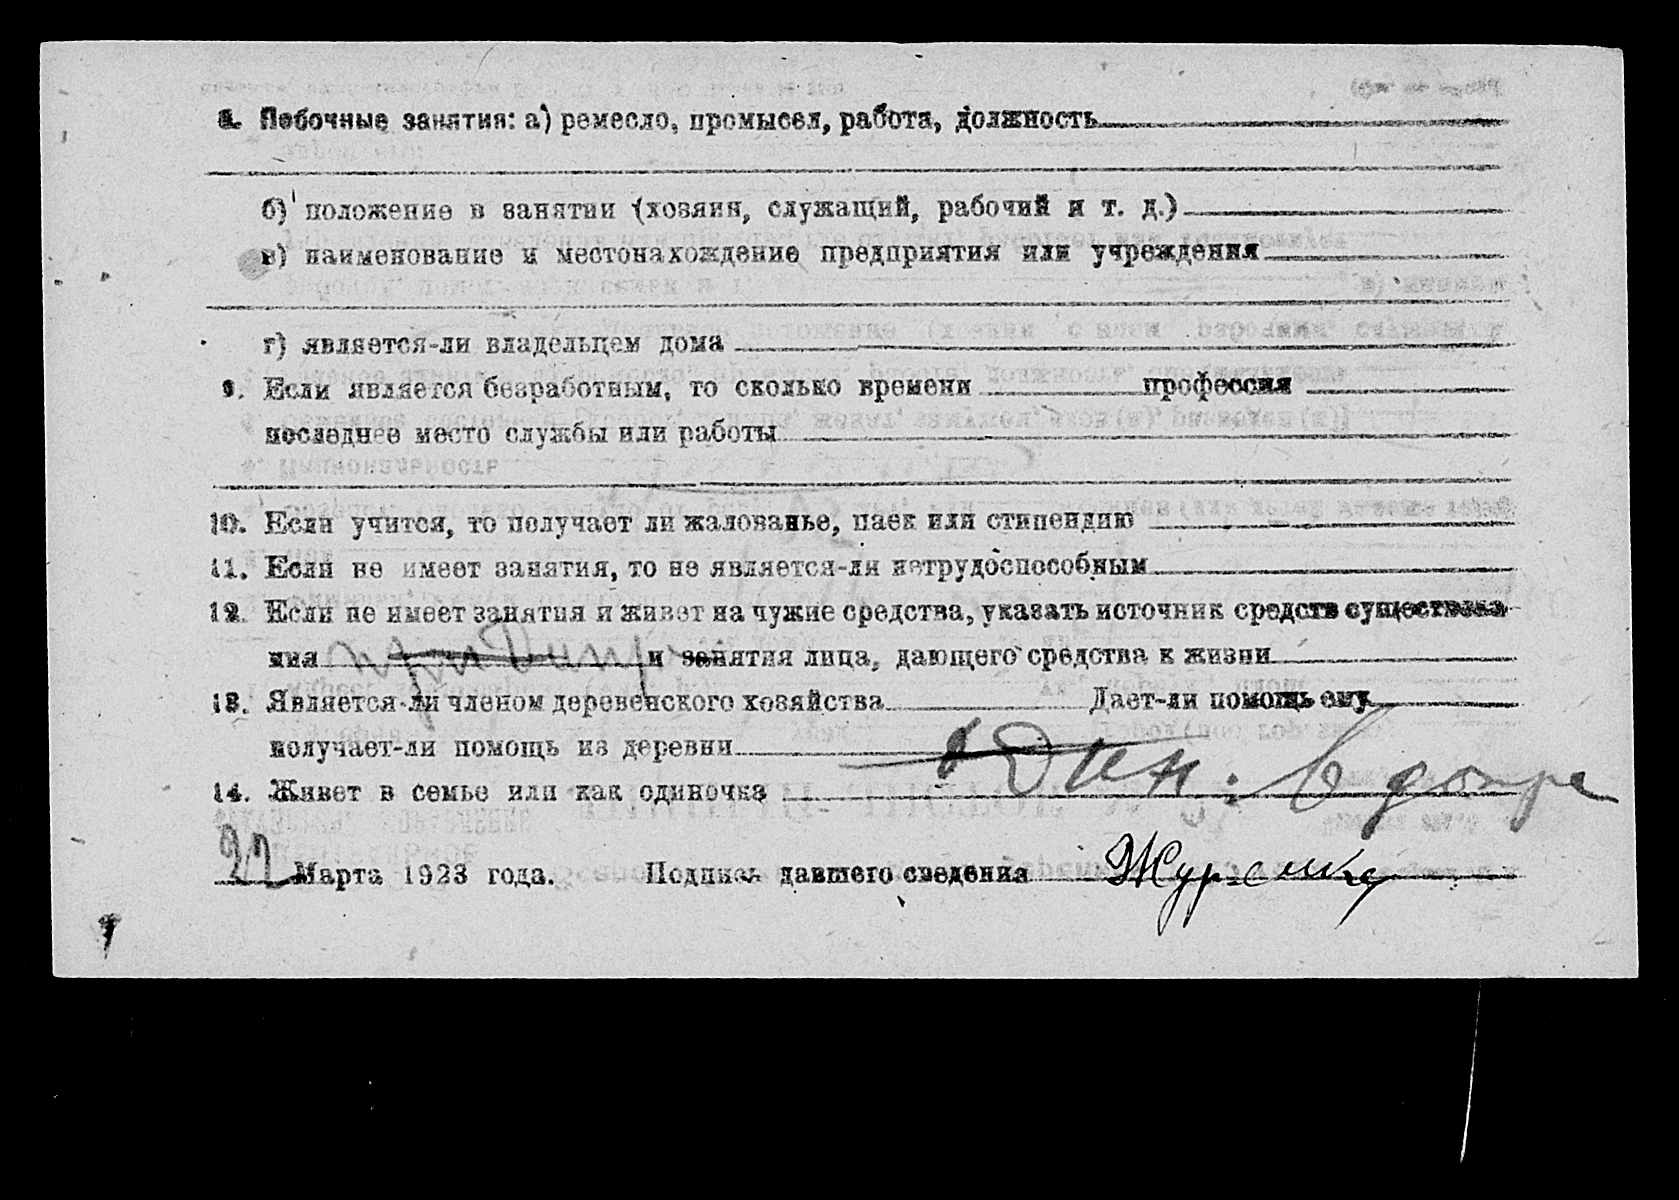 8. Побочные занятия: а) ремесло, промысел, работа, должность
б) положение в занятии (хозяин, служащий, рабочий и т. д.)
в) наименование и местонахождение предприятия или учреждения
г) является-ли владельцем дома
9. Если является безработным, то сколько времени профессия
последнее место службы или работы
10. Если учится, то получает ли жалованье, паек или стипендию
11. Если не имеет занятия, то не является-ли нетрудоспособным
12. Если не имеет занятия и живет на чужие средства, указать источник средств существова
ния и занятия лица, дающего средства к жизни
13. Является-ли членом деревенского хозяйства Дает-ли помощь ему
получает-ли помощь из деревни
14. Живет в семье или как одиночка
Марта 1923 года. Подпись давшего сведения